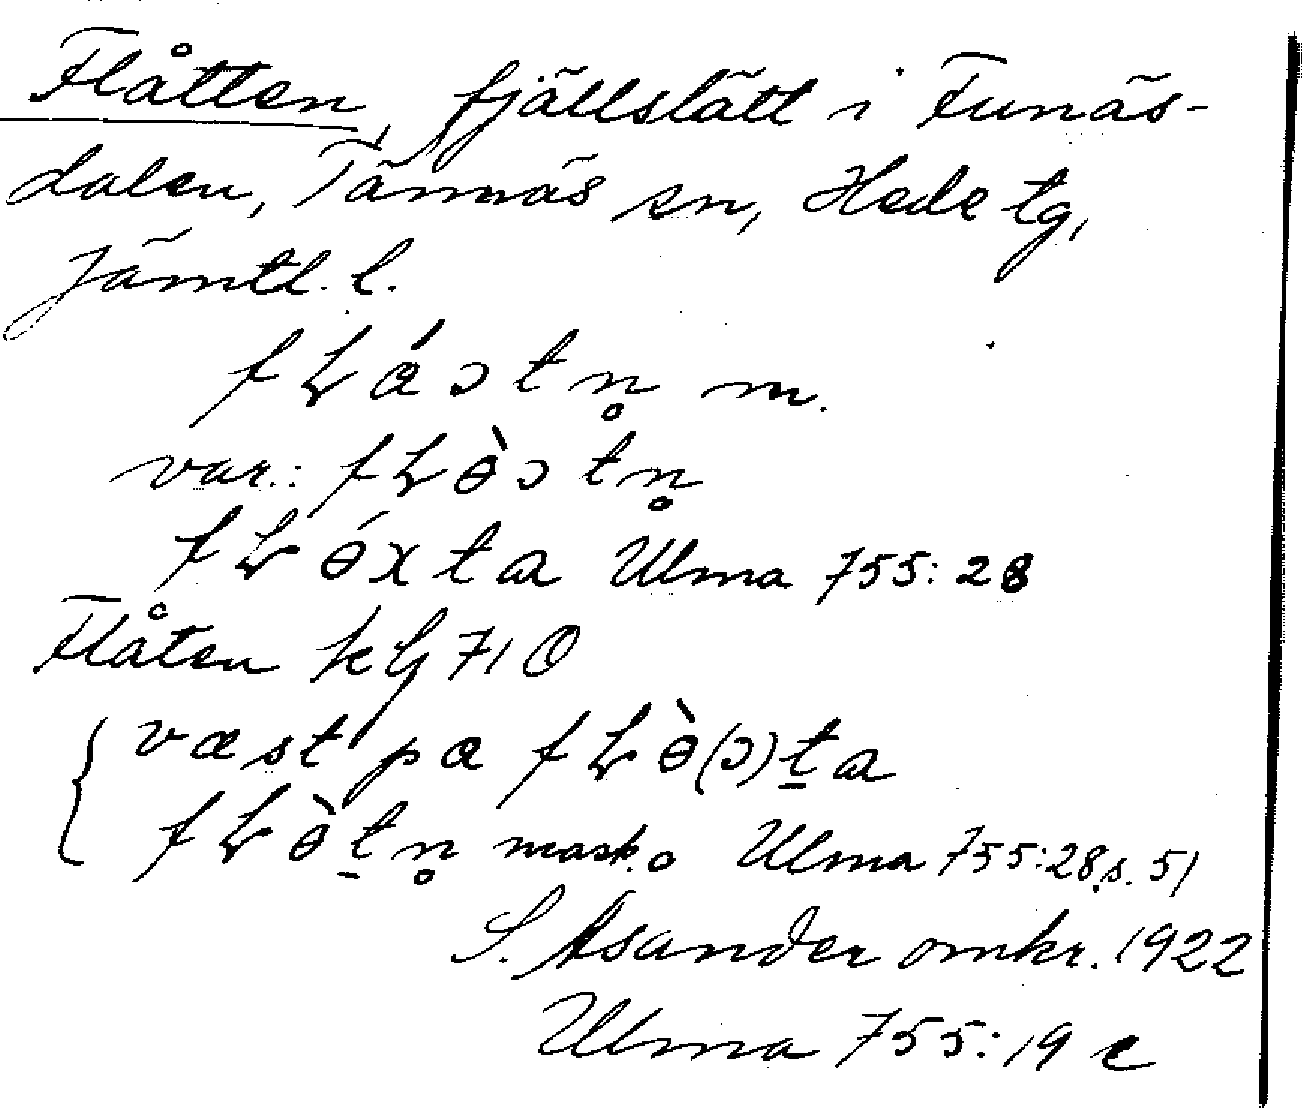 Flåtten, fjällslått i Funäs-
dalen, Tännäs sn, Hede tg,
Jämtl. l.
fⱡáɔtn̥ m.
var.: fⱡɵ̀ɔtn̥
fⱡɵ́xta Ulma 755:28
Flåten kG 710
væst pa fⱡɵ̀(ɔ)ṯa
fⱡɵ̀ṯn̥ mask. o Ulma 755:28, s. 51
S. Åsander omkr. 1922
Ulma 755:19 c